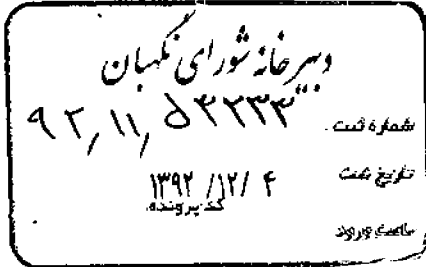 دبیرخانه شورای نگهبان
شماره ثبت ۹۲/۱۱/۵۴۲۳۳
تاریخ ثبت ۱۳۹۲/۱۲/۴
کد پرونده
ساعت ورود